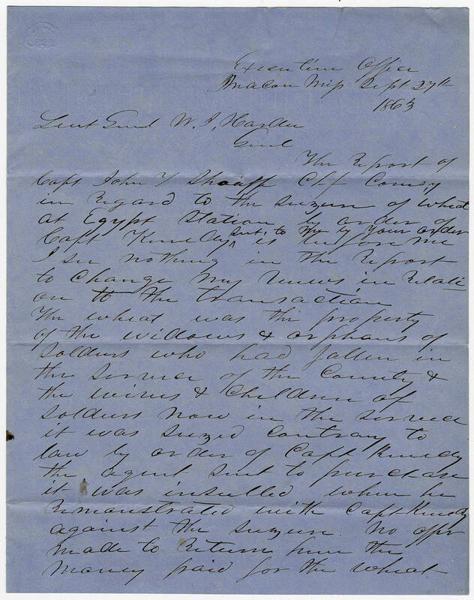 Executive Office
Macon Miss Sept 27th
1863
Lieut Genl W. J. Hardee
Genl
The report of
Capt John T Shaaff Chf Comsy
in regard to the seizure of wheat
at Egypt Station by order of
Capt Kenedy sent to me by your order is before me
I see nothing in the report
to change my views in relati
on to the transaction
The wheat was the property
of the widows & orphans of
soldiers who had fallen in
the service of the County &
the wives & Children of
soldiers now in the service
it was seized contrary to
law by order of Capt Kenedy
the agent sent to purchase
it was insulted when he
remonstrated with Capt Kenedy
against the seizure no offer
made to return him the
money paid for the wheat